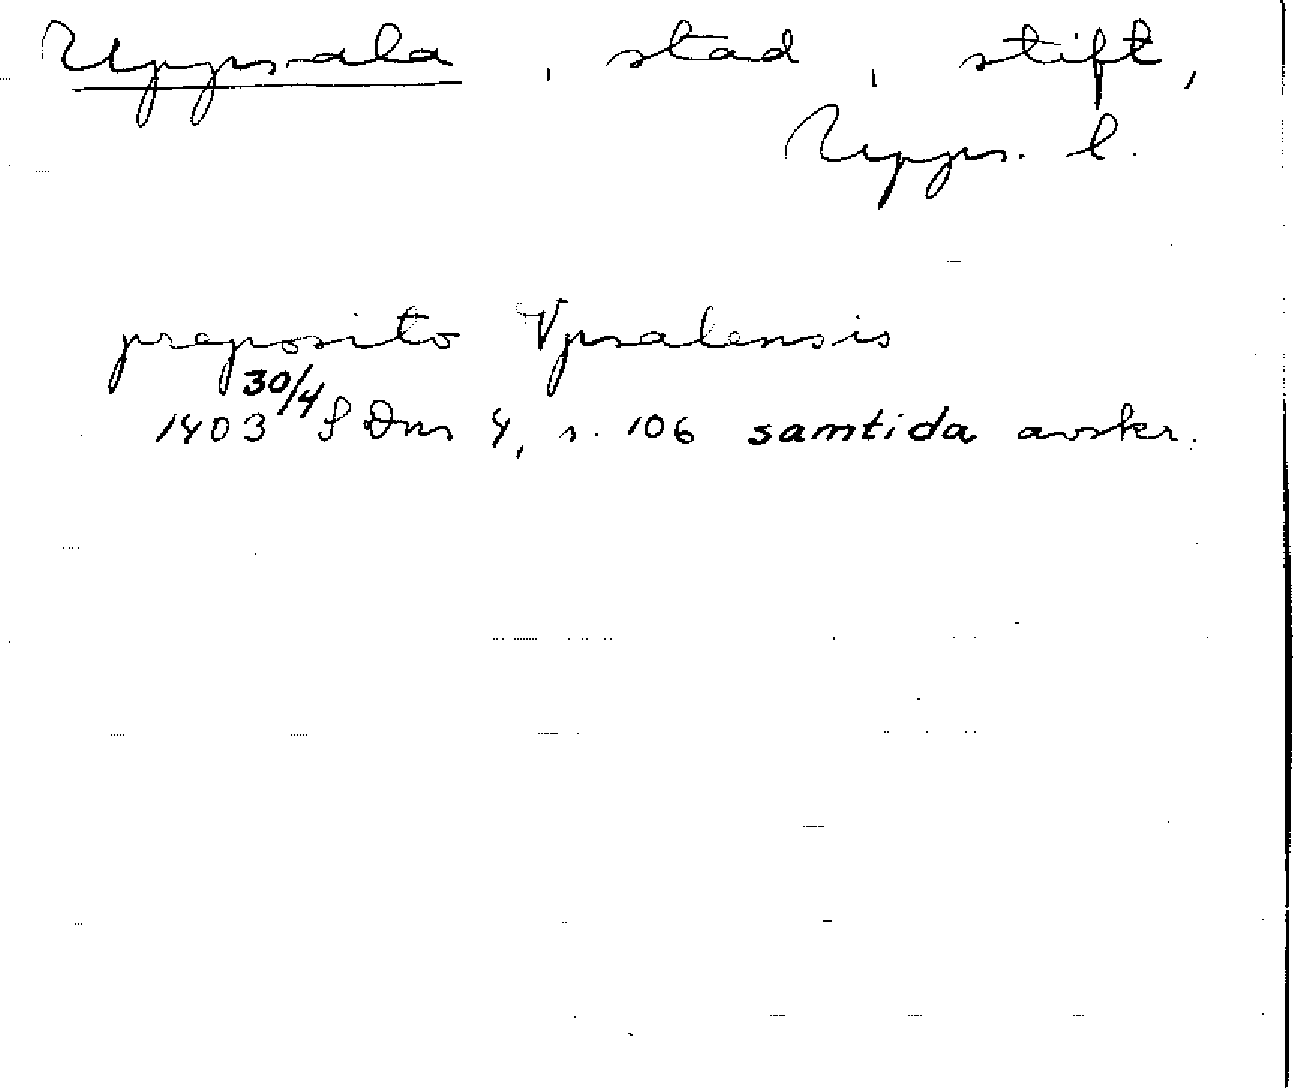 Uppsala, stad, stift,
Upps. l.
preposito Vpsalensis
1403 30/4 SDns 4, s. 106 samtida avskr.